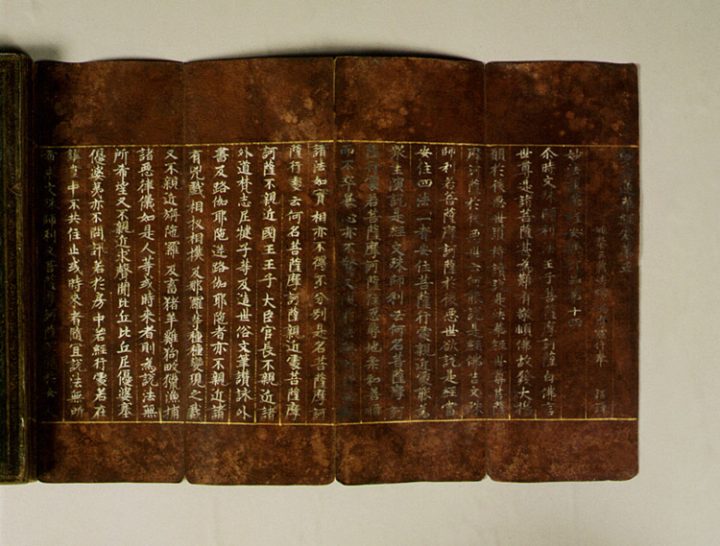 妙法蓮華經安樂行品第十四
尒時文殊師利法王子菩薩摩訶薩白佛言
世尊是諸菩薩甚為難有敬順佛故發大誓
願於後惡世護持讀說是法華經世尊菩薩
摩訶薩於後惡世云何能說是經佛告文殊
師利若菩薩摩訶薩於後惡世欲說是經當
安住四法一者安住菩薩行處親近處能為
眾生演說是經文殊師利云何名菩薩摩訶
薩行處若菩薩摩訶薩住忍辱地柔和善順
而不卒暴心亦不驚又復於法
諸法如實相亦不行不分別是名菩薩摩訶
薩行處云何名菩薩摩訶薩親近處菩薩摩
訶薩不親近國王王子大臣官長不親近諸
外道梵志尼揵子等及造世俗文筆讚詠外
書及路伽耶陁逆路伽耶陁者亦不親近諸
有兇戲相扠相撲及那羅等種種變現之戲
又不親近旃陁羅及畜猪羊雞狗畋獵漁捕
諸惡律儀如是人等或時來者則為說法無
所希望又不親近求聲聞比丘比丘尼優婆塞
優婆夷亦不問訊若於房中若經行處若在
講堂中不共住止或時來者隨宜說法無所
希求文殊師利又菩薩摩訶薩